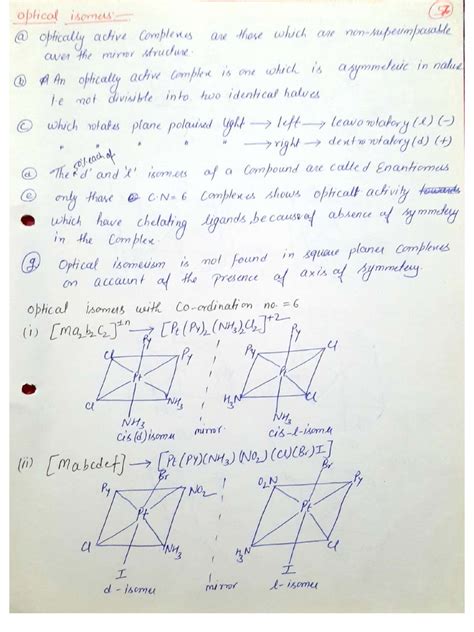 optical isomers:-
7
(a) optically active Complexes are those which are non-superimposable
over the mirror structure.
(b) An optically active Complex is one which is asymmeteric in nature
i.e not divisible into two identical halves
(c) which rotates plane polarised light → left → leavorotatory (l) (-)
" " " " → right → dextrorotatory (d) (+)
(d) The 'd' and 'l' isomers of a Compound are called Enantiomers
(e) only those C.N=6 Complexes shows optical activity towards
which have chelating ligands, because of absence of symmetery
in the Complex.
(g) Optical isomerism is not found in square planer Complexes
on account of the presence of axis of symmetery.
Optical isomers with Co-ordination no. = 6
(i) [Ma2b2C2]±n → [Pt(Py)2(NH3)2Cl2]+2
Py Py
Cl Py Py Cl
Pt Pt
Cl NH3 H3N Cl
NH3 NH3
cis(d)isomer mirror. cis-l-isomer
(ii) [Mabcdef] → [Pt(PY)(NH3)(NO2)(Cl)(Br)I]
Br Br
Py NO2 O2N Py
Pt Pt
Cl NH3 H3N Cl
I I
d-isomer mirror l-isomer